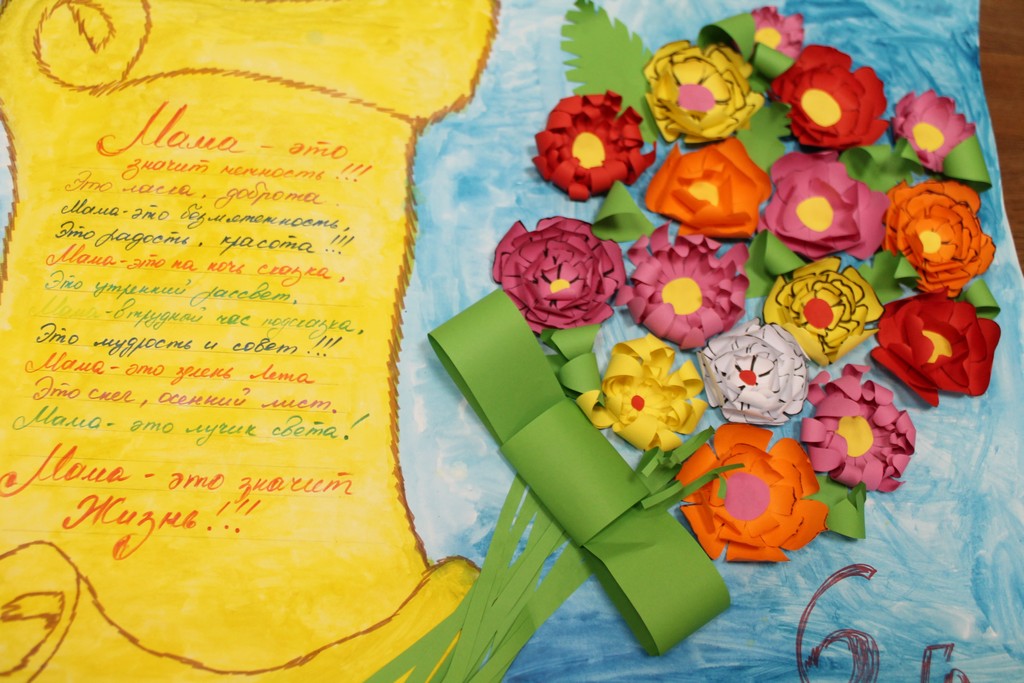 Мама - это
значит нежность !!!
Это ласка, доброта.
Мама - это безмятежность,
Это радость, красота !!!
Мама - это на ночь сказка,
Это утренний рассвет,
Мама - в трудный час подсказка,
Это мудрость и совет !!!
Мама - это зелень лета
Это снег, осенний лист.
Мама - это лучик света!
Мама - это значит
Жизнь!!!
6